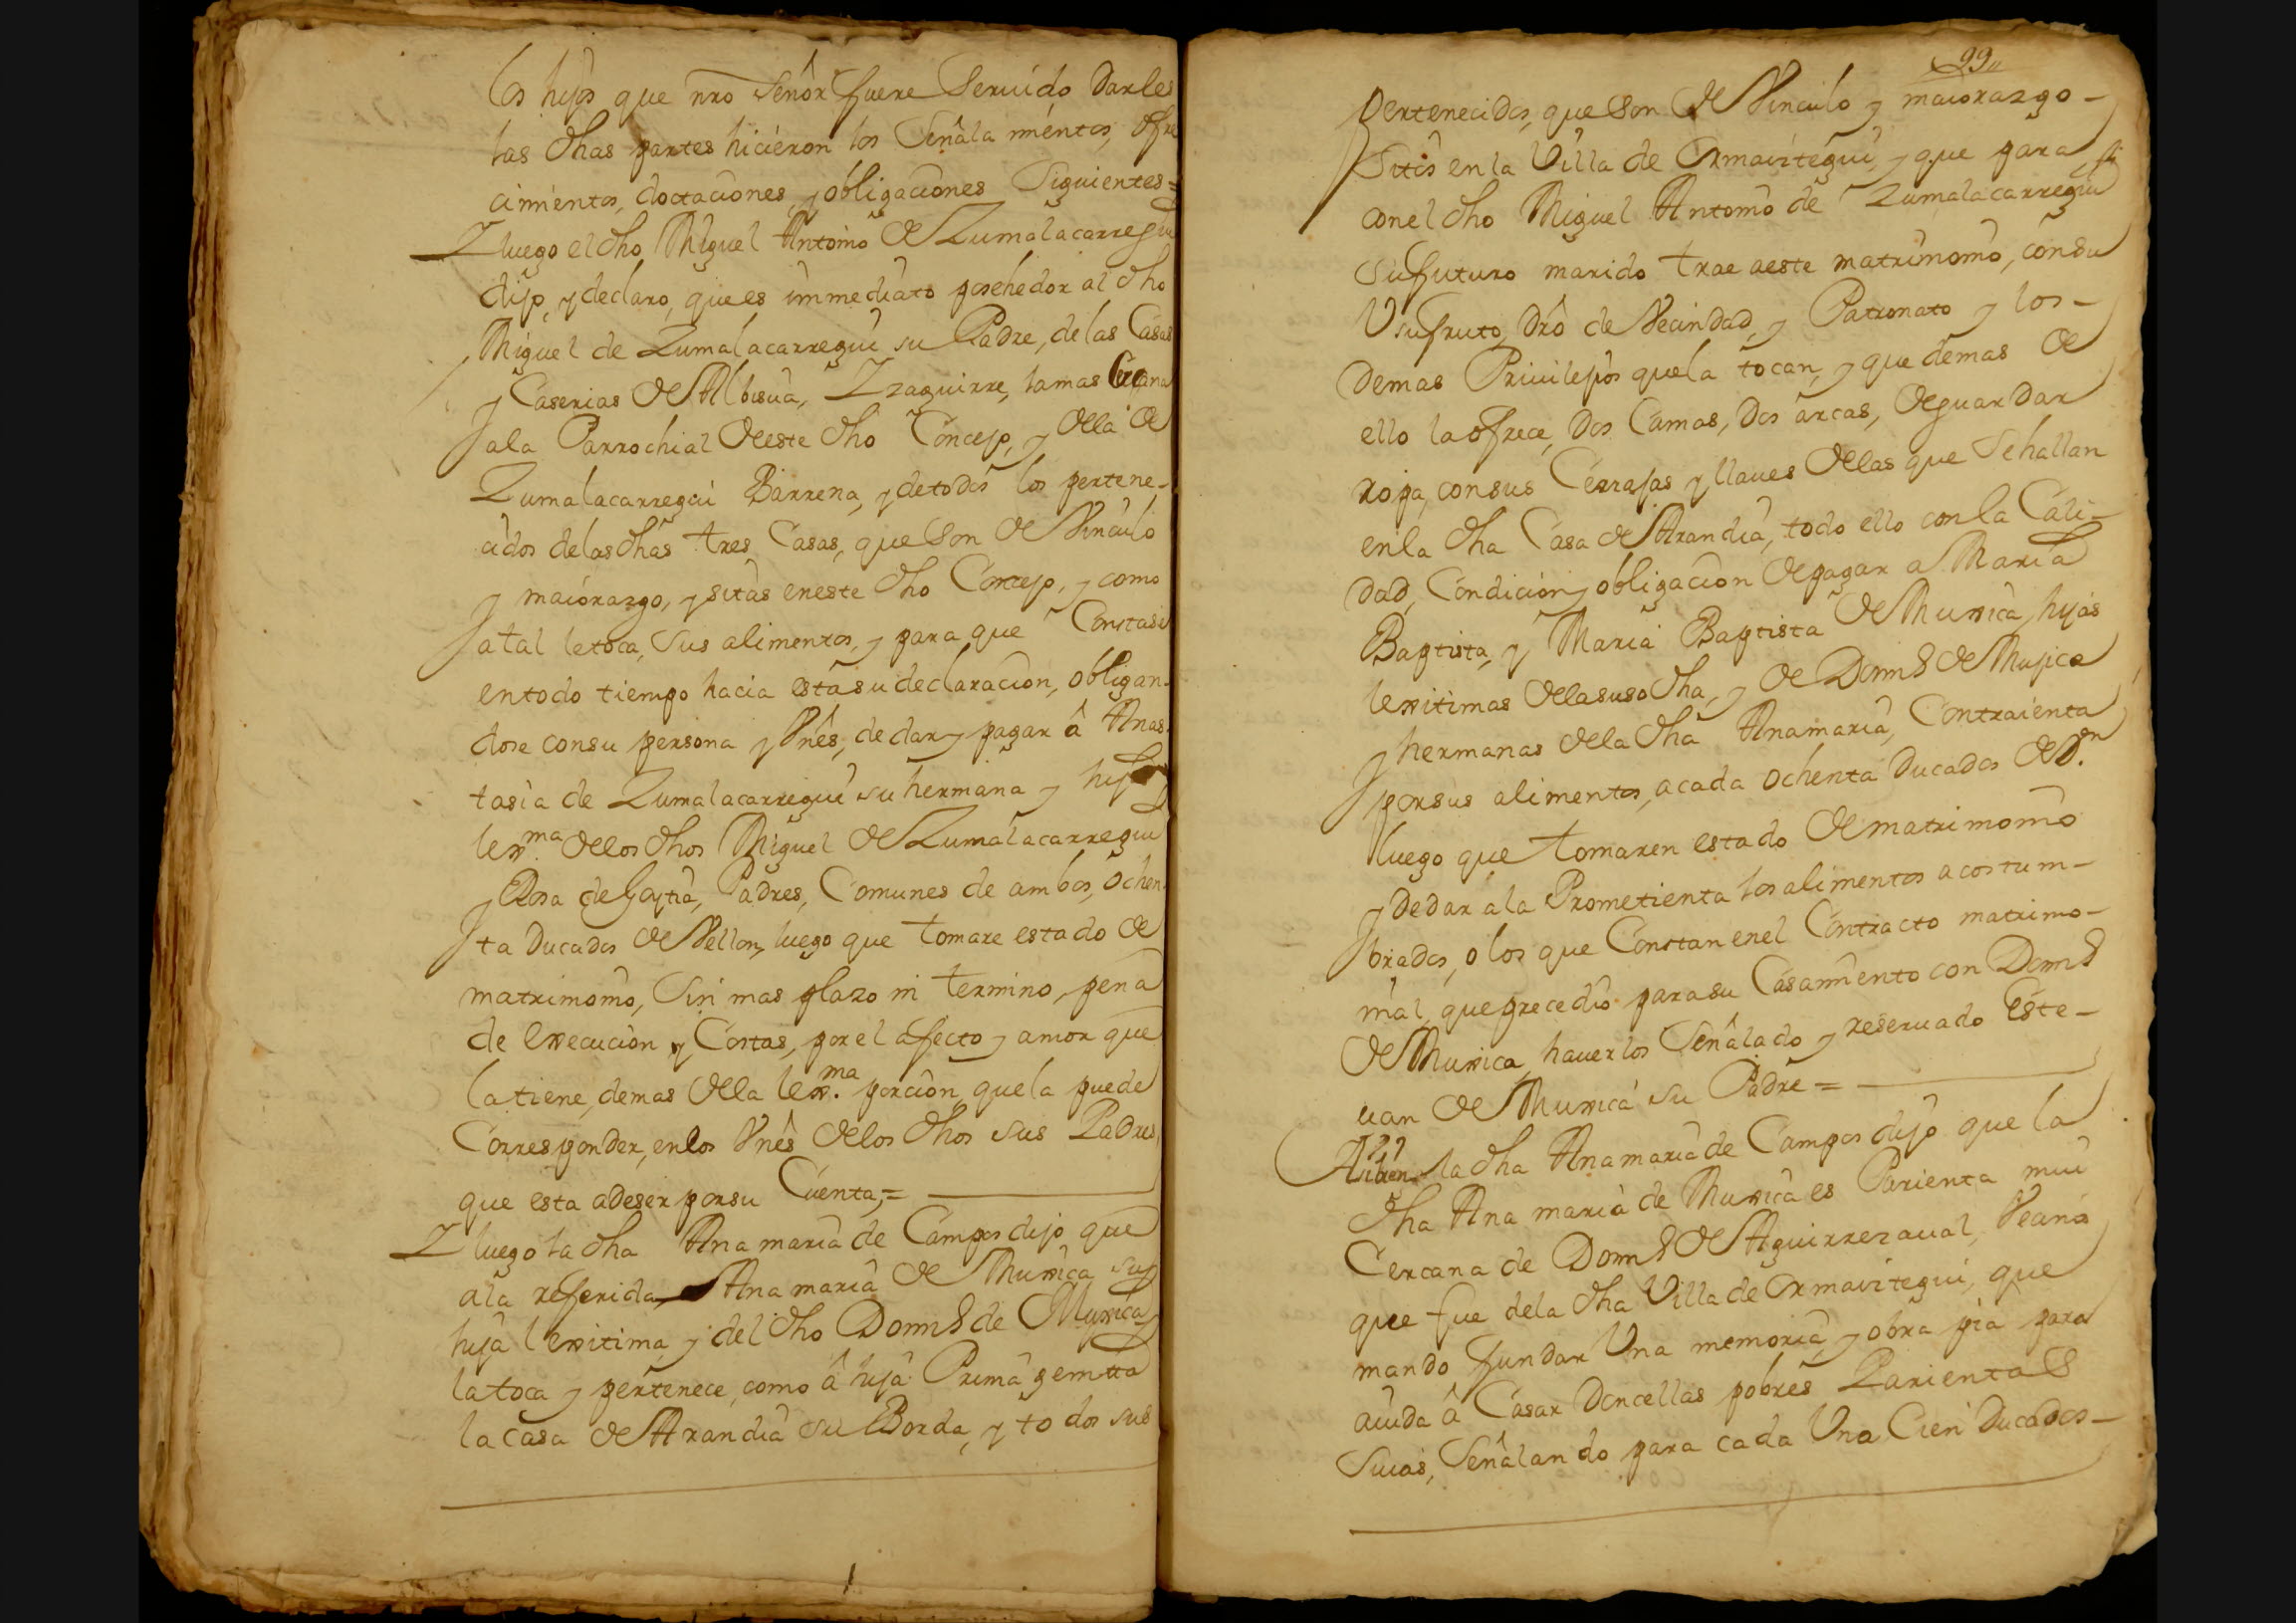 los hijos que nrō Señor fuere Seruido Darles
las dhas partes hicieron los Señala mientos, ofre
cimientos, doctaciones, y obligaciones Siguientes=
Y luego el dho Miguel Antonio de Zumalacarregui
dijo, y declaro, que es immediato posehedor al dho
Miguel de Zumalacarregui su Padre, de las Casas
y Caserias de Albisua, Yzaguirre, la mas Cercana
a la Parrochial de este dho Concejo, y de la de
Zumalacarregui Barrena, y de todos los pertene-
cidos de las dhas tres Casas, que Son de Vinculo
y maiorazgo, y sitas en este dho Concejo, y como
a tal le toca, Sus alimentos, y para que Constase
en todo tiempo hacia esta su declaracion, obligan-
dose con su persona y Vnês, de dar y pagar â Anas-
tasia de Zumalacarregui su hermana y hija
lexma. de los dhos Miguel de Zumalacarregui
y Rosa de Goytia, Padres, Comunes de ambos, ochen-
ta Ducados de Vellon, luego que tomare estado de
matrimonio, Sin mas plazo ni termino, pena
de execucion y Costas, por el afecto y amor que
la tiene, demas de la lexma. porcion que la puede
Corresponder, en los Vnês de los dhos sus Padres
que esta a deser por su Cuenta,=
Y luego la dha Ana maria de Campos dijo que
a la referida Ana maria de Muxica su
hija lexitima y del dho Domgo de Muxica
la toca y pertenece, como â hija Primâ genitta
la Casa de Arandia su Borda, y todos sus
99
pertenecidos, que Son de Vinculo y maiorazgo-
Sitos en la Villa de Ormaiztegui, y que para
con el dho Miguel Antonio de Zumalacarregui
su futuro marido trae a este matrimonio, con su
Vsufruto, drô de Vecindad, y Patronato y los-
demas Priuilejios que la tocan, y que demas de
ello la ofrece, Dos Camas, Dos arcas, de guardar
ropa, con sus Cerrajas y llaues de las que Se hallan
en la dha Casa de Arandia, todo ello con la Cali-
dad, Condicion y obligacion de pagar a Maria
Baptista, y Maria Baptista de Muxica, hijas
lexitimas de la suso dha, y de Domgo de Mujica
y hermanas de la dha Ana maria, Contraienta
por sus alimentos, a cada ochenta Ducados de Von.
luego que tomaren estado de matrimonio
y de dar a la Prometienta los alimentos a costum-
brados, o los que Constan en el Contracto matrimo-
nial, que precedio para su Casamiento con Domgo
de Muxica, hauer los Señalado y reseruado Este-
uan de Muxica su Padre =
Assi bien la dha Ana maria de Campos dijo que la
dha Ana maria de Muxica es Parienta mui
Cercana de Domgo de Aguirrezaual, Vecino
que fue de la dha Villa de Ormaiztegui, que
mando fundar Vna memoria, y obra pia para
aiuda â Casar Doncellas pobres Parientas
Suias, Señalando para cada Vna Cien Ducados-